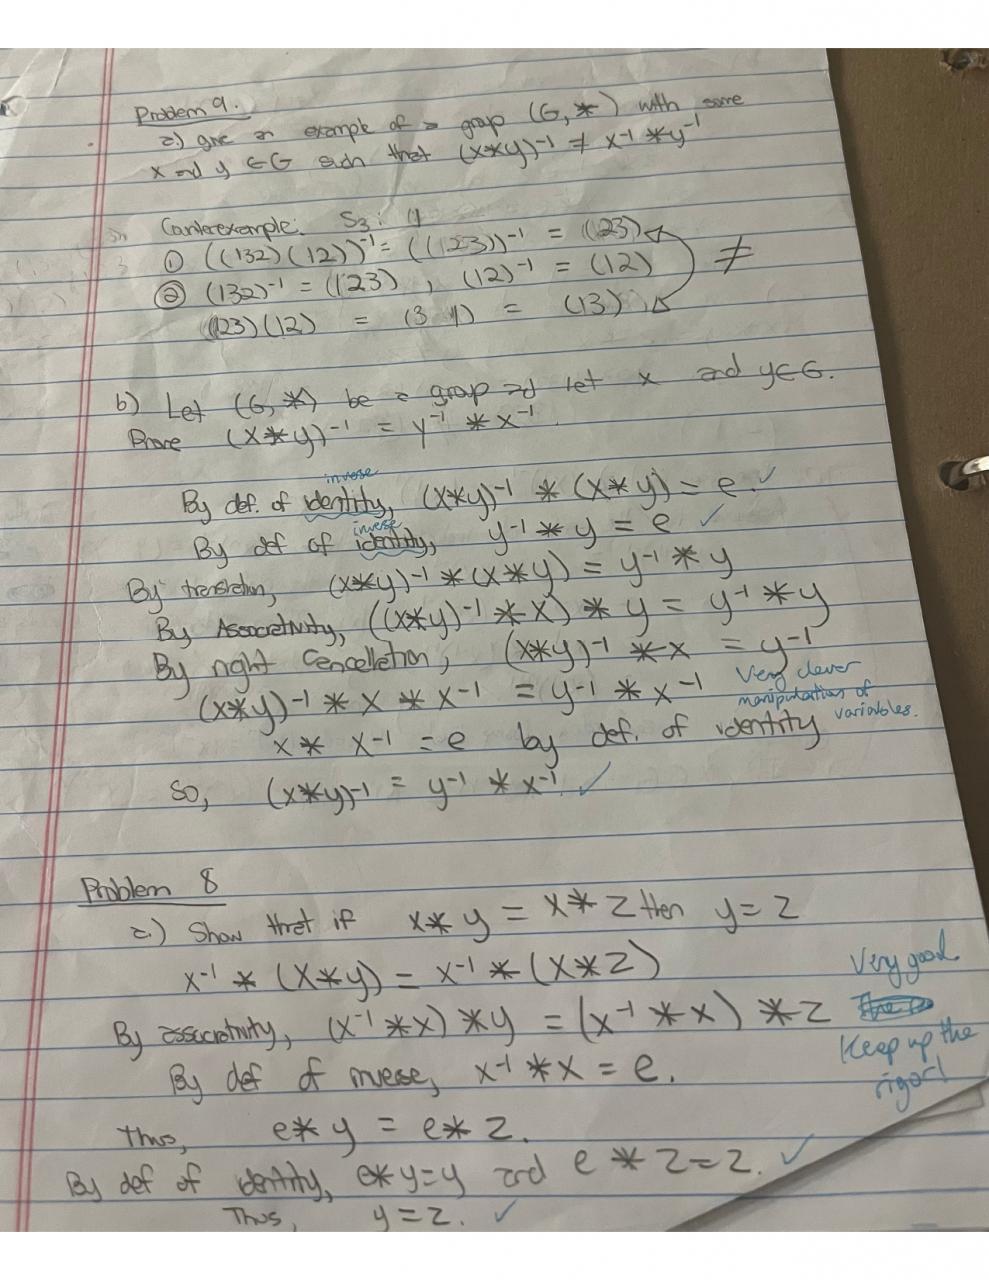 Problem 9.
a.) give an example of a group (G, *) with some
x and y ∈ G such that (x*y)-1 ≠ x-1 * y-1
Counterexample: S3:
① ((132)(12))-1 = ((23))-1 = (23)
② (132)-1 = (123), (12)-1 = (12) ≠
(123)(12) = (3 1) = (13)
b) Let (G, *) be a group and let x and y∈G.
Prove (x*y)-1 = y-1 * x-1.
inverse
By def. of identity, (x*y)-1 * (x*y) = e. ✓
inverse
By def of identity, y-1 * y = e ✓
By translation, (x*y)-1 * (x*y) = y-1 * y
By Associativity, ((x*y)-1 * x) * y = y-1 * y
By right Cancellation, (x*y)-1 * x = y-1
(x*y)-1 * x * x-1 = y-1 * x-1 Very clever
manipulation of
variables.
x * x-1 = e by def. of identity
So, (x*y)-1 = y-1 * x-1. ✓
Problem 8
a.) Show that if x * y = x * z then y = z
x-1 * (x*y) = x-1 * (x*z) Very good
By associativity, (x-1 * x) * y = (x-1 * x) * z
Keep up the
rigor!
By def of inverse, x-1 * x = e.
Thus, e * y = e * z.
By def of identity, e*y=y and e * z = z. ✓
Thus, y = z. ✓